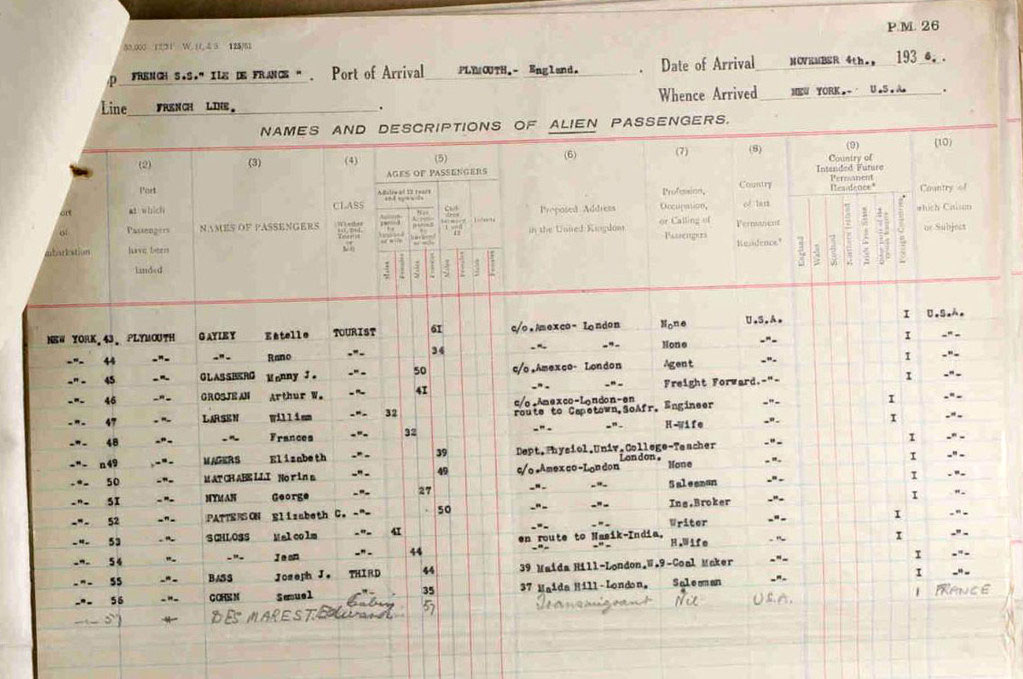 P.M. 26
W. H. & S. 125/61
FRENCH S.S." ILE DE FRANCE ". Port of Arrival PLYMOUTH.- England. Date of Arrival NOVEMBER 4th., 1936.
Line FRENCH LINE. Whence Arrived NEW YORK.- U.S.A.
NAMES AND DESCRIPTIONS OF ALIEN PASSENGERS.
(2) (3) (4) (5) (6) (7) (8) (9) (10)
Port at which Passengers have been landed
NAMES OF PASSENGERS
CLASS (Whether 1st, 2nd, Tourist or 3rd)
AGES OF PASSENGERS
Adults of 12 years and upwards
Accompanied by husband or wife
Not Accompanied by husband or wife
Children between 1 and 12
Infants
Males Females Males Females Males Females Males Females
Proposed Address in the United Kingdom
Profession, Occupation, or Calling of Passengers
Country of last Permanent Residence*
Country of Intended Future Permanent Residence*
England Wales Scotland Northern Ireland Irish Free State Foreign Countries
Country of which Citizen or Subject
NEW YORK. 43. PLYMOUTH GAYLEY Estelle TOURIST 61 c/o.Amexco- London None U.S.A. I U.S.A.
-"- 44 -"- -"- -"- 34 -"- -"- None -"- I -"-
-"- 45 -"- GLASSBERG Monny J. -"- 50 c/o.Amexco- London Agent -"- I -"-
-"- 46 -"- GROSJEAN Arthur W. -"- 41 -"- -"- Freight Forward.-"- I -"-
-"- 47 -"- LARSEN William -"- 32 c/o.Amexco-London-en route to Capetown.SoAfr. Engineer -"- I -"-
-"- 48 -"- -"- Frances -"- 32 -"- -"- H-Wife -"- I -"-
-"- n49 -"- MAGERS Elizabeth -"- 39 Dept.Physiol.Univ.College-Teacher London. -"- I -"-
-"- 50 -"- MATCHABELLI Norina -"- 49 c/o.Amexco-London None -"- I -"-
-"- 51 -"- NYMAN George -"- 27 -"- -"- Salesman -"- I -"-
-"- 52 -"- PATTERSON Elizabeth C. -"- 50 -"- -"- Ins.Broker -"- I -"-
-"- 53 -"- SCHLOSS Malcolm -"- 41 -"- -"- Writer -"- I -"-
en route to Nasik-India.
-"- 54 -"- -"- Jean -"- 44 -"- -"- H.Wife -"- I -"-
-"- 55 -"- BASS Joseph J. THIRD 44 39 Maida Hill-London.W.9-Coal Maker -"- I -"-
-"- 56 -"- COHEN Samuel -"- 35 37 Maida Hill-London. Salesman -"- I -"-
57 -"- DES MAREST. Edward Cabin 57 Transmigrant Nil U.S.A. I FRANCE